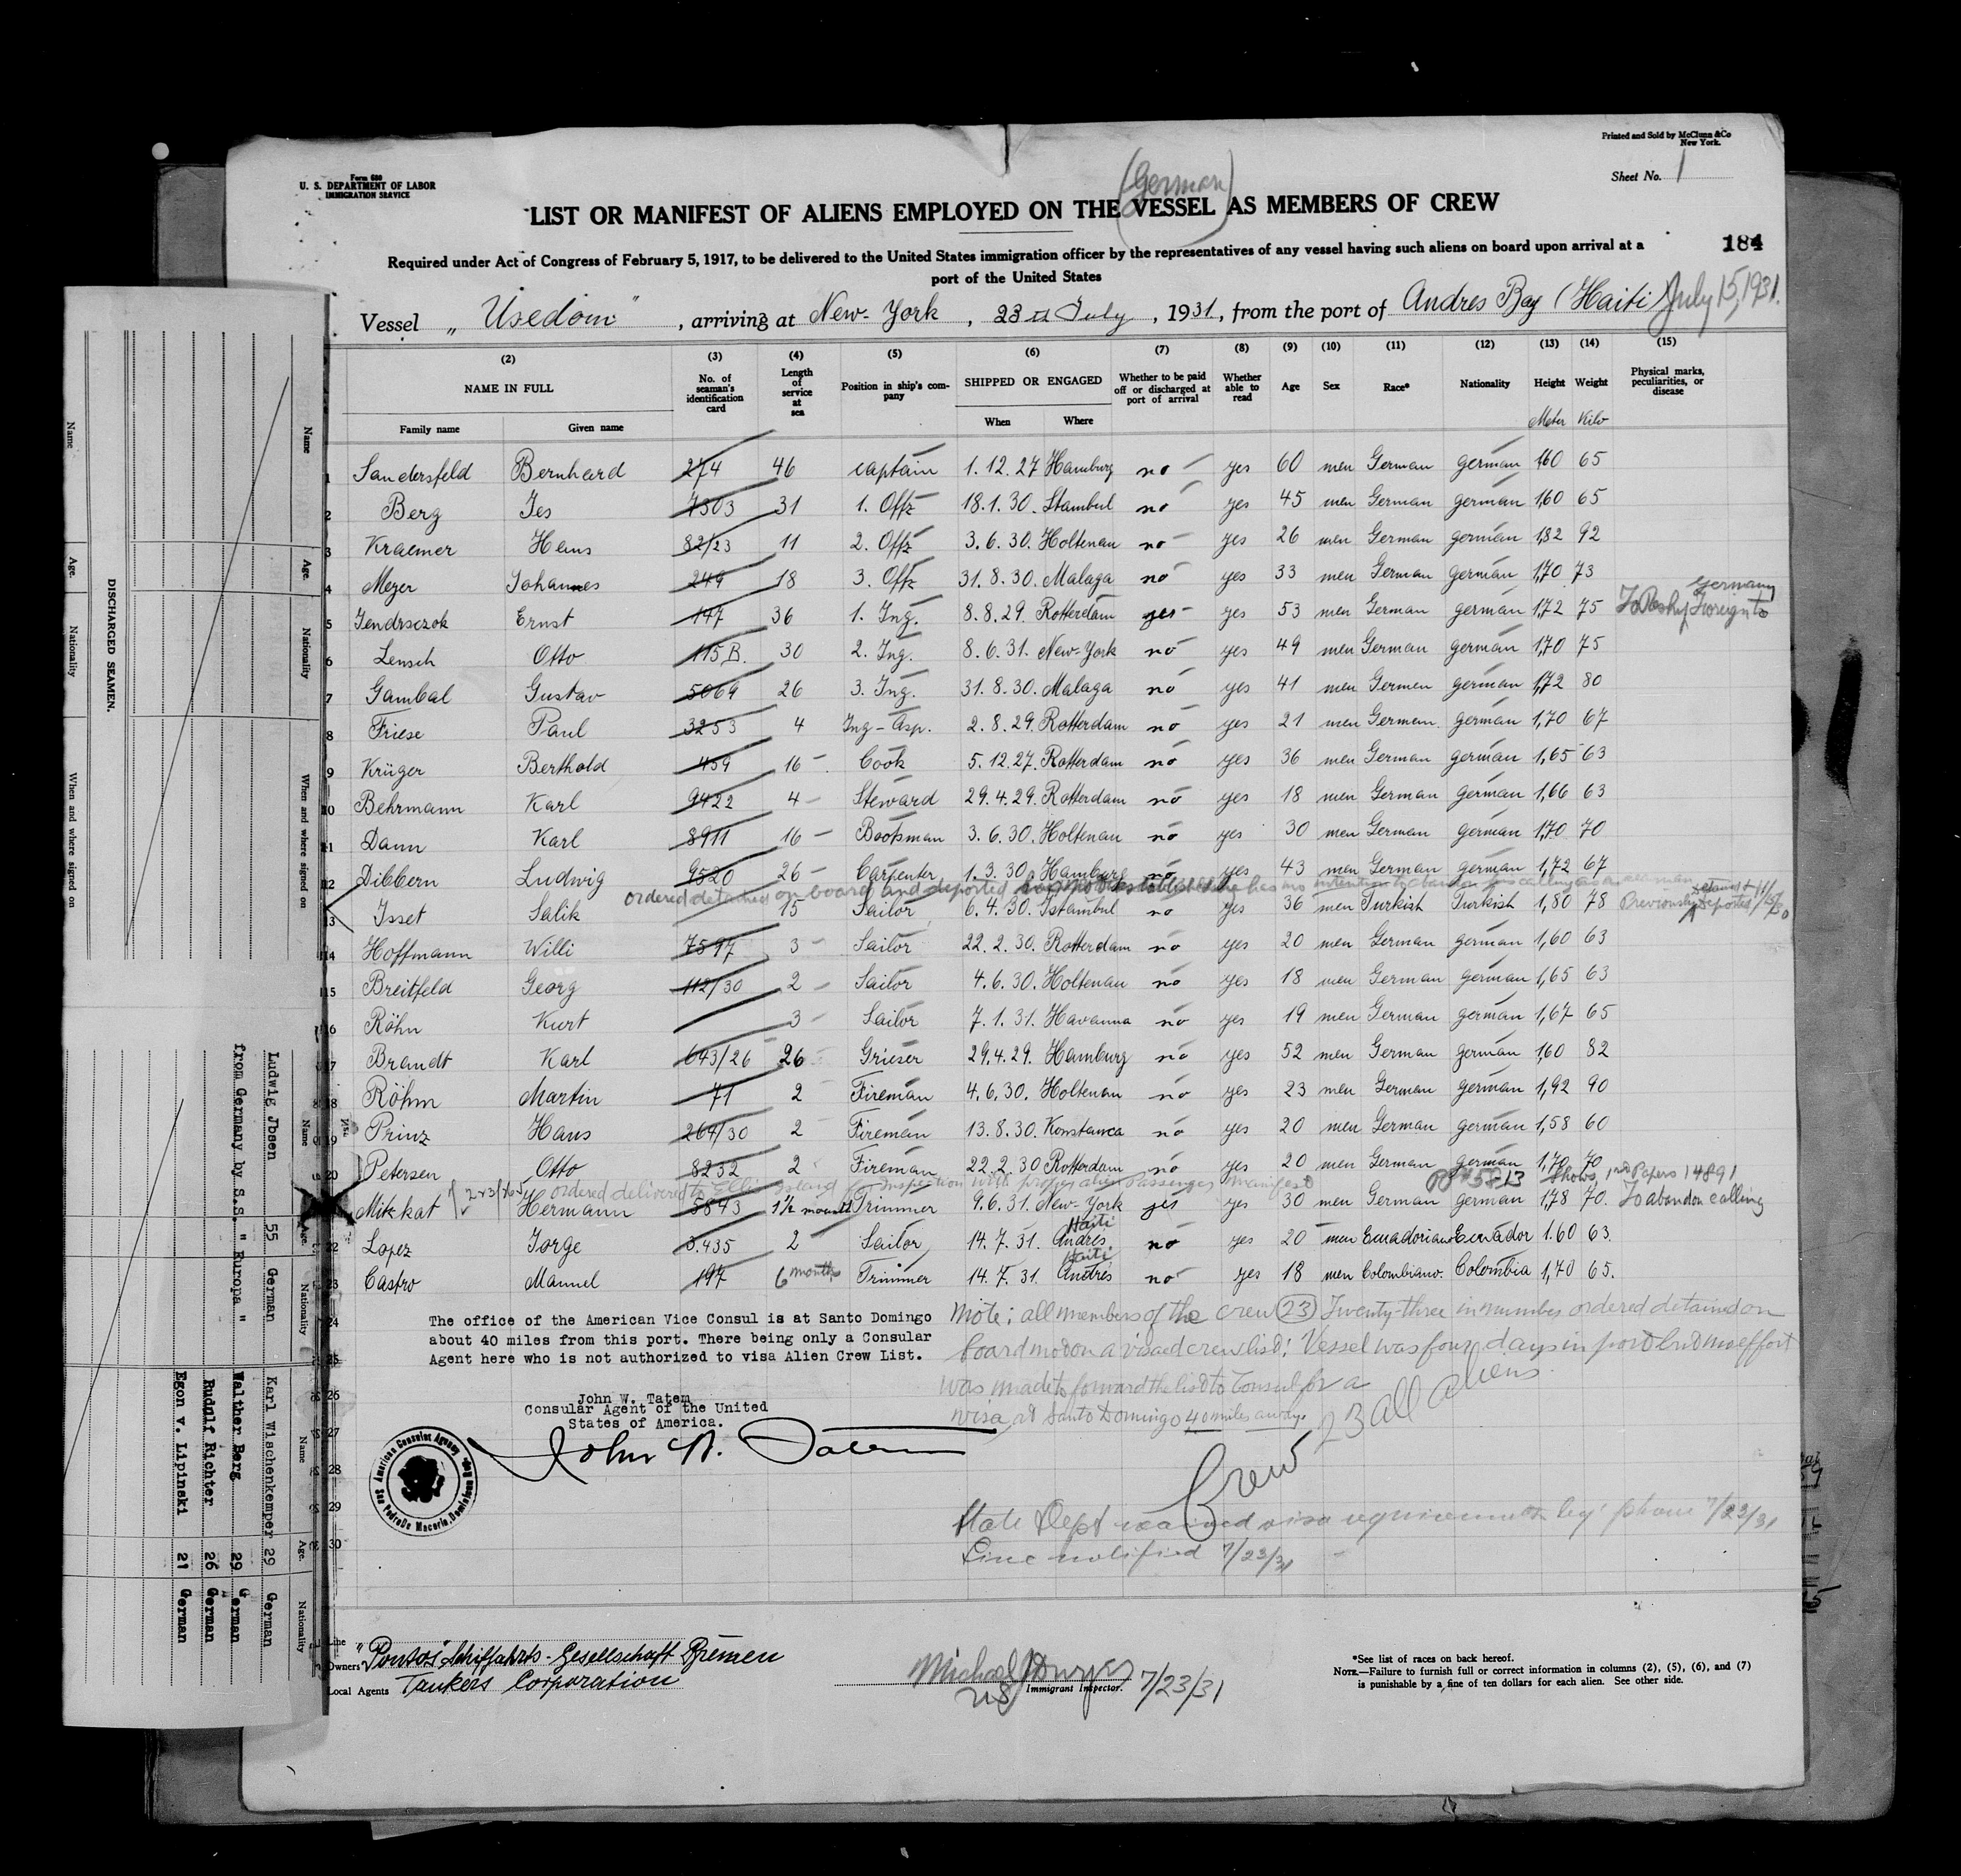 Printed and Sold by McClunn & Co
New York.
Form 680
U. S. DEPARTMENT OF LABOR
IMMIGRATION SERVICE
Sheet No. 1
(German)
LIST OR MANIFEST OF ALIENS EMPLOYED ON THE VESSEL AS MEMBERS OF CREW
184
Required under Act of Congress of February 5, 1917, to be delivered to the United States immigration officer by the representatives of any vessel having such aliens on board upon arrival at a
port of the United States
Vessel „Usedom", arriving at New-York, 23rd July, 1931, from the port of Andres Bay (Haiti) July 15, 1931.
(2) (3) (4) (5) (6) (7) (8) (9) (10) (11) (12) (13) (14) (15)
NAME IN FULL No. of seaman's identification card Length of service at sea Position in ship's company SHIPPED OR ENGAGED Whether to be paid off or discharged at port of arrival Whether able to read Age Sex Race* Nationality Height Weight Physical marks, peculiarities, or disease
Family name Given name When Where Meter Kilo
1 Sandersfeld Bernhard 274 46 captain 1.12.27 Hamburg no yes 60 men German german 1,60 65
2 Berg Jes 7303 31 1. Offz 18.1.30. Stambul no yes 45 men German german 1,60 65
3 Kraemer Hans 82/23 11 2. Offz 3.6.30. Holtenau no yes 26 men German german 1,82 92
4 Meyer Johannes 249 18 3. Offz 31.8.30. Malaga no yes 33 men German german 1,70 73
Germany
5 Jendrsczok Ernst 147 36 1. Ing. 8.8.29. Rotterdam yes yes 53 men German german 1,72 75 To Reship Foreign to
6 Lensch Otto 115 B. 30 2. Ing. 8.6.31. New-York no yes 49 men German german 1,70 75
7 Gambal Gustav 5069 26 3. Ing. 31.8.30. Malaga no yes 41 men German german 1,72 80
8 Friese Paul 3253 4 Ing-Asp. 2.8.29. Rotterdam no yes 21 men German german 1,70 67
9 Krüger Berthold 459 16 Cook 5.12.27. Rotterdam no yes 36 men German german 1,65 63
10 Behrmann Karl 9422 4 Steward 29.4.29. Rotterdam no yes 18 men German german 1,66 63
11 Dann Karl 8911 16 Bootsman 3.6.30. Holtenau no yes 30 men German german 1,70 70
12 Dibbern Ludwig 9520 26 Carpenter 1.3.30 Hamburg no yes 43 men German german 1,72 67
ordered detained on board and deported he has no intention to abandon his calling as a seaman
13 Isset Salik 15 Sailor 6.4.30. Istambul no yes 36 men Turkish Turkish 1,80 78 Previously deported
14 Hoffmann Willi 7597 3 Sailor 22.2.30. Rotterdam no yes 20 men German german 1,60 63
15 Breitfeld Georg 112/30 2 Sailor 4.6.30. Holtenau no yes 18 men German german 1,65 63
16 Röhn Kurt 3 Sailor 7.1.31. Havanna no yes 19 men German german 1,67 65
17 Brandt Karl 643/26 26 Grieser 29.4.29. Hamburg no yes 52 men German german 1,60 82
18 Röhm Martin 71 2 Fireman 4.6.30. Holtenau no yes 23 men German german 1,92 90
19 Prinz Hans 264/30 2 Fireman 13.8.30. Konstanca no yes 20 men German german 1,58 60
20 Petersen Otto 8232 2 Fireman 22.2.30 Rotterdam no yes 20 men German german 1,70 70
ordered delivered to Ellis Island for Inspection with proper alien passenger manifest Shows 1st Papers 14891
Mitzkat Hermann 5843 1½ months Trimmer 9.6.31. New-York yes yes 30 men German german 1,78 70. To abandon calling
22 Lopez Jorge 3.435 2 Sailor 14.7.31. Andres. Haiti no yes 20 men Ecuadoriano Ecuador 1.60 63.
23 Castro Manuel 197 6 months Trimmer 14.7.31. Andres Haiti no yes 18 men Colombiano. Colombia 1,70 65.
24
25
26
27
28
29
30
The office of the American Vice Consul is at Santo Domingo
about 40 miles from this port. There being only a Consular
Agent here who is not authorized to visa Alien Crew List.
John W. Tatem
Consular Agent of the United
States of America.
John W. Tatem
American Consular Agency
San Pedro De Macoris, Dominican Rep.
Note: all members of the crew (23) Twenty-three in number ordered detained on
board not on a visaed crew list: Vessel was four days in port but no effort
was made to forward the list to Consul for a
visa, at Santo Domingo 40 miles away.
23 all aliens
Crew
State Dept waived visa requirements by phone 7/23/31
Line notified 7/23/31
Line
Owners "Pontos" Schiffahrts-Gesellschaft Bremen
Local Agents Tankers Corporation
Immigrant Inspector. 7/23/31
*See list of races on back hereof.
NOTE.—Failure to furnish full or correct information in columns (2), (5), (6), and (7)
is punishable by a fine of ten dollars for each alien. See other side.
DISCHARGED SEAMEN.
Name Age. Nationality When and where signed on
Name Age. Nationality When and where signed on
Name Age. Nationality Name Age. Nationality
Ludwig Jbsen 55 German Karl Wischenkemper 29 German
from Germany by S.S. " Europa " Walther Berg 29 German
Rudulf Richter 26 German
Egon v. Lipinski 21 German